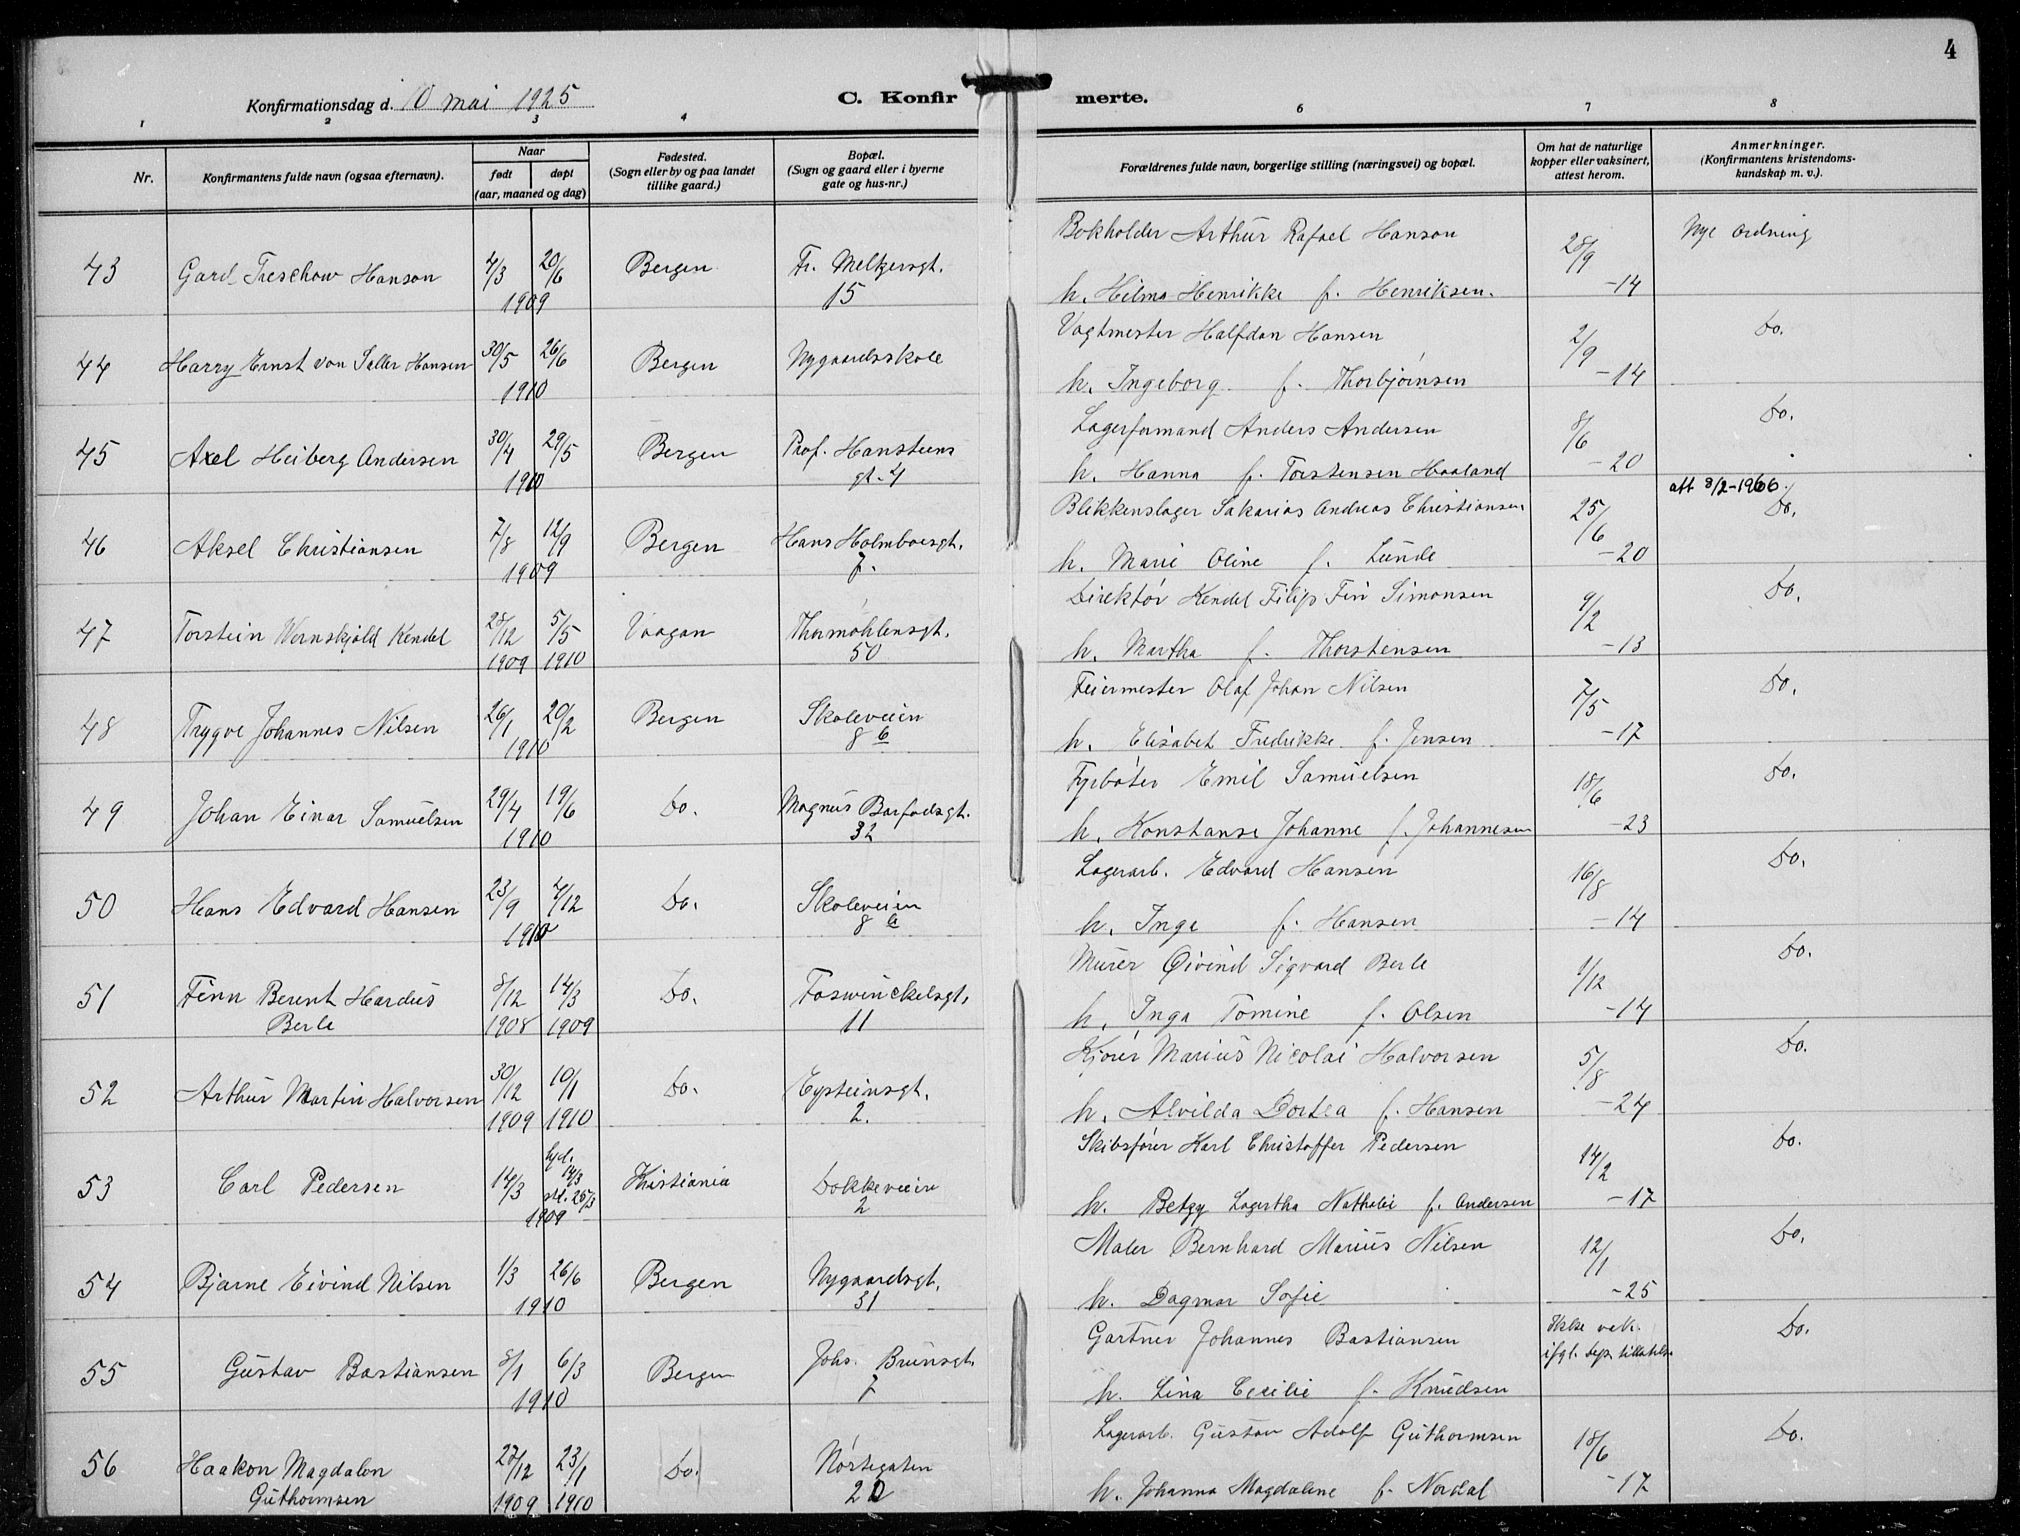 4
Konfirmationsdag d. 10 mai 1925
C. Konfirmerte.
1 2 3 4 6 7 8
Nr.
Konfirmantens fulde navn (ogsaa efternavn).
Naar
født døpt
(aar, maaned og dag)
Fødested.
(Sogn eller by og paa landet
tillike gaard.)
Bopæl.
(Sogn og gaard eller i byerne
gate og hus-nr.)
Forældrenes fulde navn, borgerlige stilling (næringsvei) og bopæl.
Om hat de naturlige
kopper eller vaksinert,
attest herom.
Anmerkninger.
(Konfirmantens kristendoms-
kundskap m. v.).
Bokholder Arthur Rafael Hanson 28/9 Nye ordning
43 Gard Treschow Hanson 4/3 20/6 Bergen Fr. Meltzersgt.
1909 15 h. Hilma Henrikke f. Henriksen. -14
Vagtmester Halfdan Hansen 2/9 do.
44 Harry Ernst von Saller Hansen 30/5 26/6 Bergen Nygaardsskole
1910 h. Ingeborg f. Thorbjørnsen -14
Lagerformand Anders Andersen 8/6 do.
45 Axel Heiberg Andersen 30/4 29/5 Bergen Prof. Hansteens
1910 gt. 4 h. Hanna f. Torstensen Haaland -20
att 8/2-1966.
Blikkenslager Sakarias Andreas Christiansen 25/6 do.
46 Aksel Christiansen 7/8 12/9 Bergen Hans Holmboesgt.
1909 7. h. Marie Oline f. Lunde -20
Direktør Kendel Filip Fin Simonsen 9/2 do.
47 Torstein Wernskjold Kendel 28/12 5/5 Vaagan Thormøhlensgt.
1909 1910 50 h. Martha f. Thorstensen -13
Feiermester Olaf Johan Nilsen 7/5 do.
48 Trygve Johannes Nilsen 26/1 20/2 Bergen Skoleveien
1910 8 b h. Elisabet Fredrikke f. Jensen -17
Fyrbøter Emil Samuelsen 18/6 do.
49 Johan Einar Samuelsen 29/4 19/6 do. Magnus Barfodsgt.
1910 32 h. Konstanse Johanne f. Johannesen -23
Lagerarb. Edvard Hansen 16/8 do.
50 Hans Edvard Hansen 23/9 4/12 do. Skoleveien
1910 8 a h. Inga f. Hansen -14
Murer Øivind Sigvard Berle 1/12 do.
51 Finn Berent Hardus 8/12 14/3 do. Foswinckelsgt.
Berle 1908 1909 11 h. Inga Tomine f. Olsen -14
Kjører Marius Nicolai Halvorsen 5/8 do.
52 Arthur Martin Halvorsen 30/12 10/1 do. Eysteinsgt.
1909 1910 2. h. Alvilda Dortea f. Hansen -24
Skibsfører Karl Christoffer Pedersen 14/2 do.
53 Carl Pedersen 14/3 hjd. 14/3 stf. 25/3 Kristiania Dokkeveien
1909 2 h. Betzy Lagertha Nathalie f. Andersen -17
Maler Bernhard Marius Nilsen 12/1 do.
54 Bjarne Eivind Nilsen 1/3 26/6 Bergen Nygaardsgt.
1910 31 h. Dagmar Sofie -25
Gartner Johannes Bastiansen Ikke vak. do.
ifgl. dep. tillatelse
55 Gustav Bastiansen 8/1 6/3 Bergen Johs. Brunsgt.
1910 7 h. Lina Cecilie f. Knudsen
Lagerarb. Gustav Adolf Guthormsen 18/6 do.
56 Haakon Magdalon 27/12 23/1 do. Nøstegaten
Guthormsen 1909 1910 20 h. Johanna Magdalene f. Nordal -17